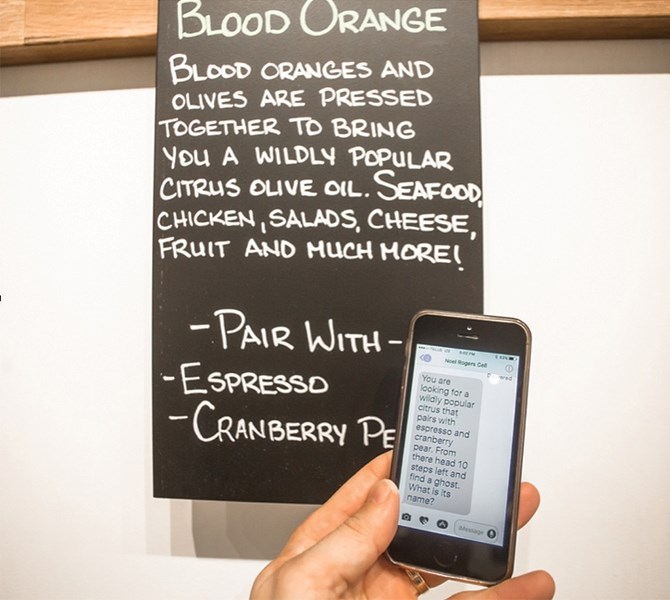 BLOOD ORANGE
BLOOD ORANGES AND
OLIVES ARE PRESSED
TOGETHER TO BRING
YOU A WILDLY POPULAR
CITRUS OLIVE OIL. SEAFOOD,
CHICKEN, SALADS, CHEESE,
FRUIT AND MUCH MORE!
- PAIR WITH -
- ESPRESSO
- CRANBERRY PE
Noel Rogers Cell
You are
looking for a
wildly popular
citrus that
pairs with
espresso and
cranberry
pear. From
there head 10
steps left and
find a ghost.
What is its
name?
iMessage